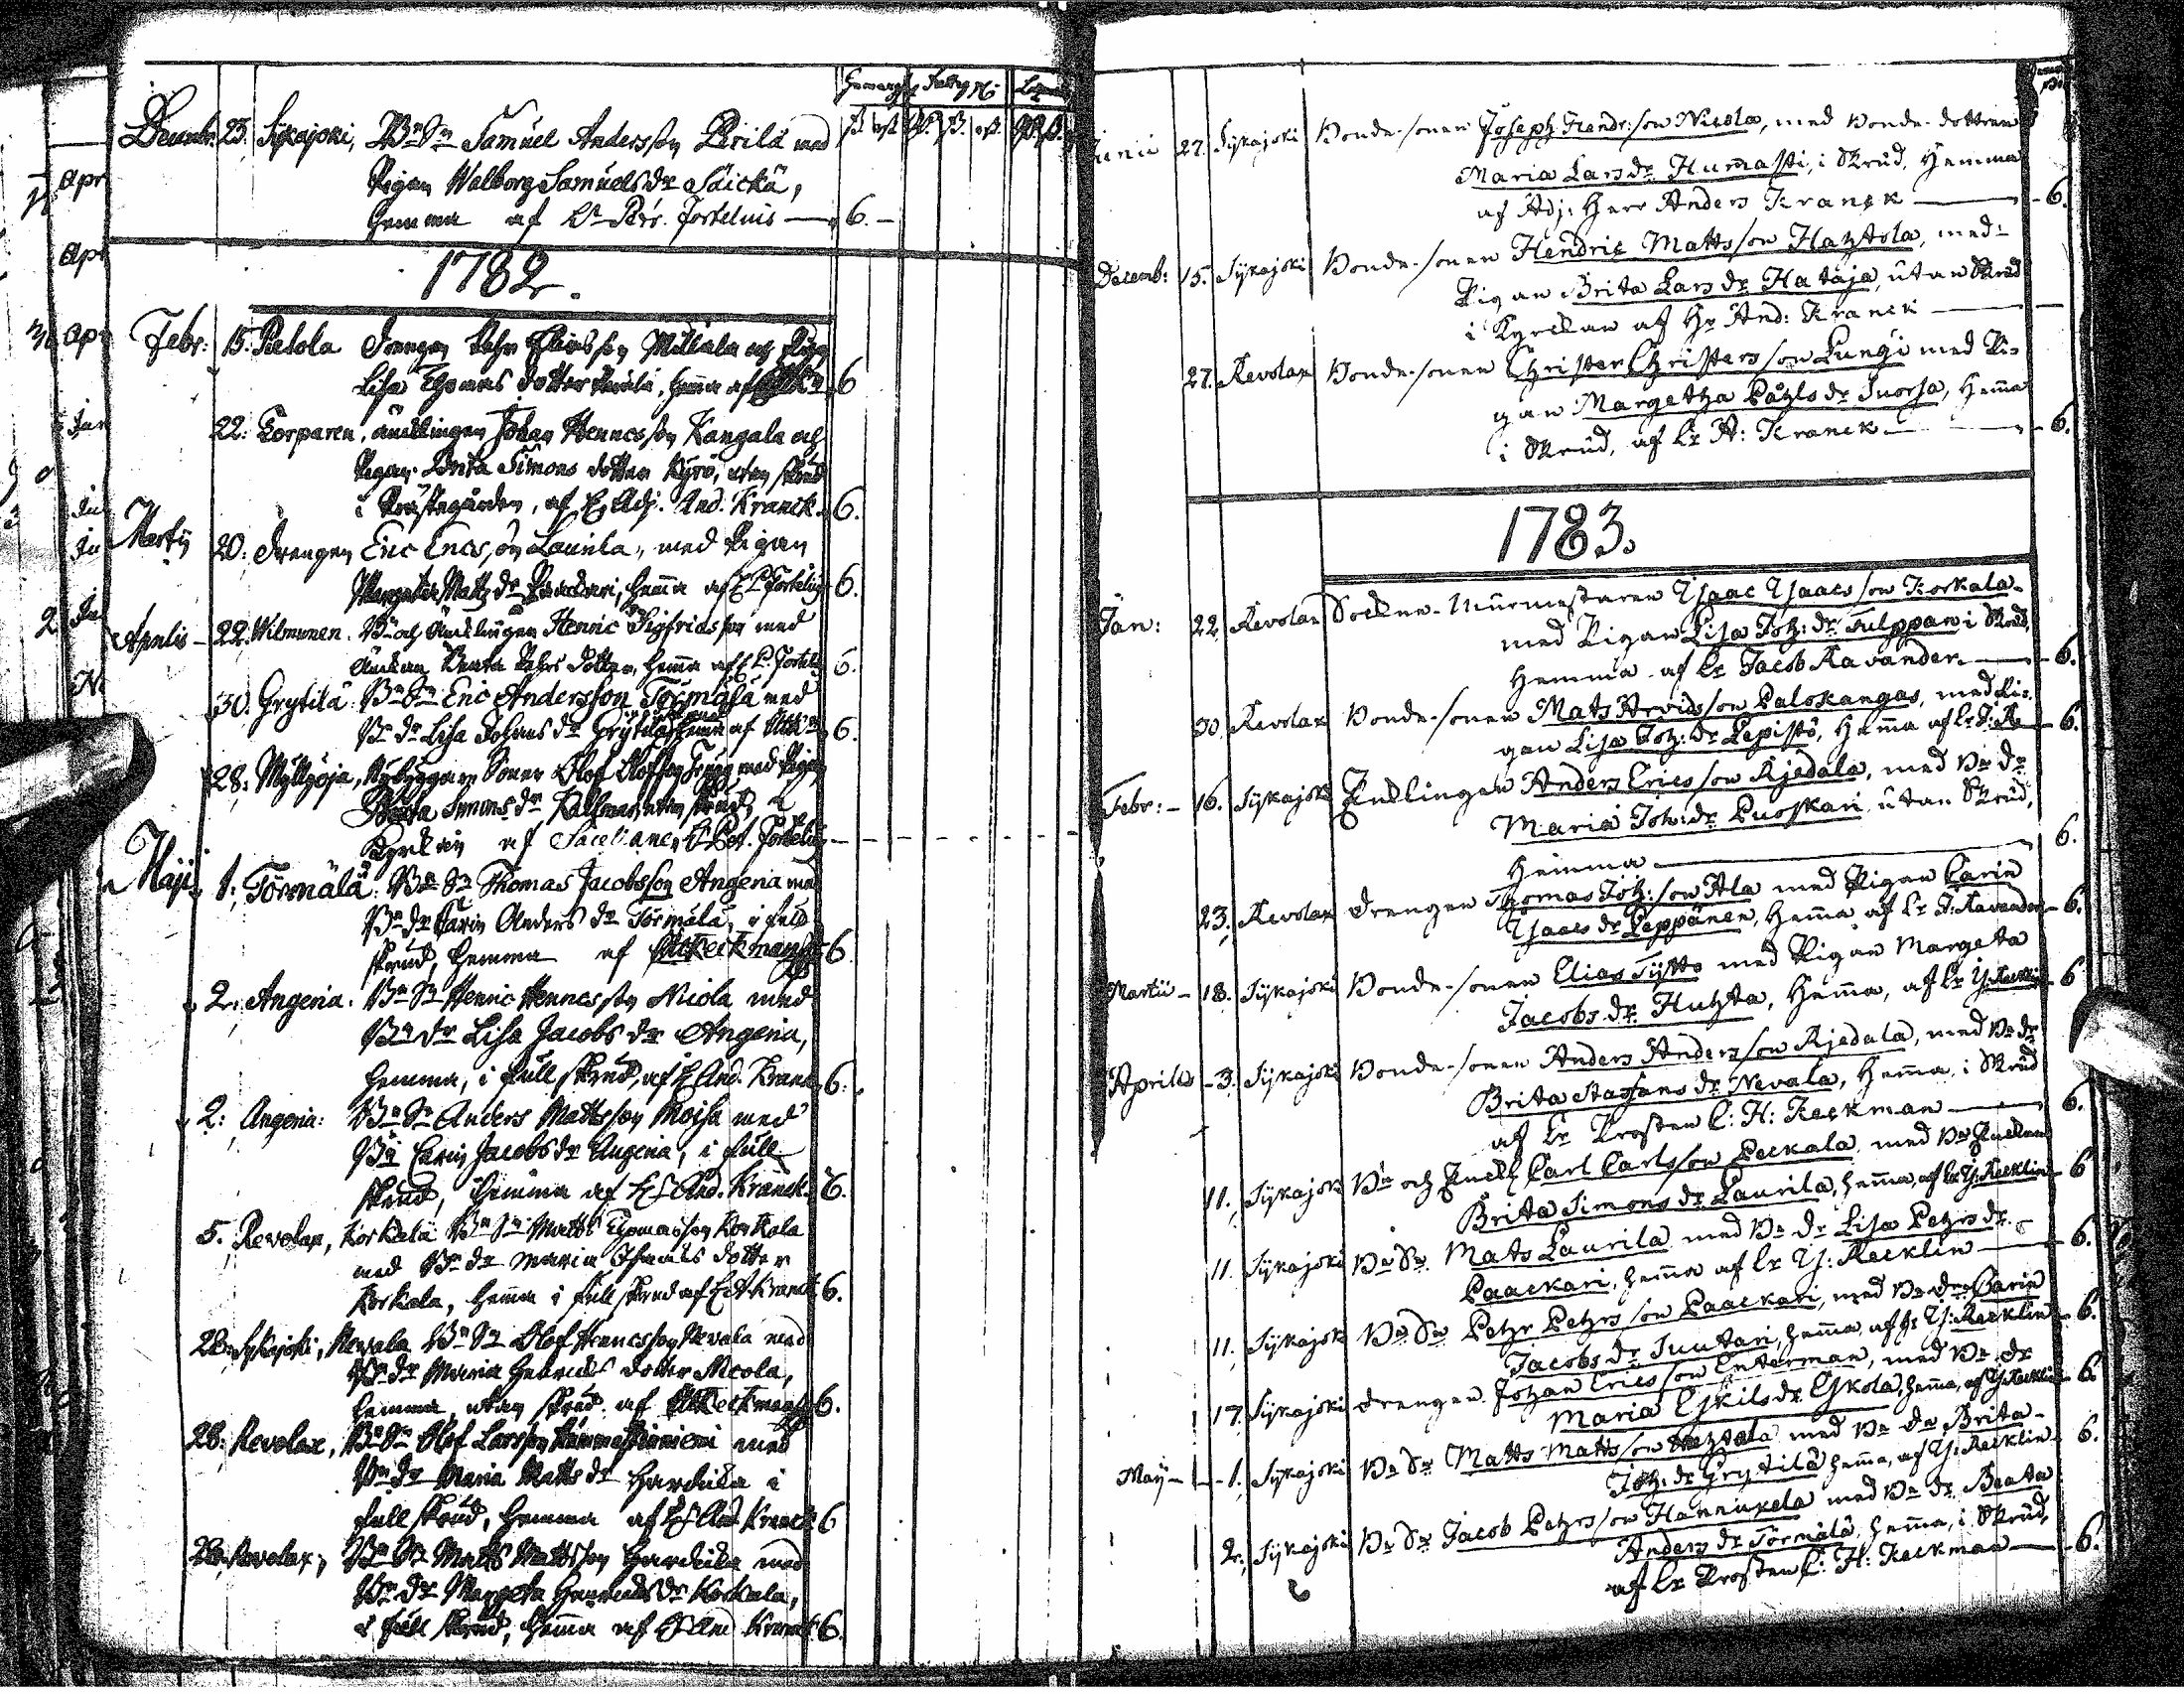 Decemb: 23. Sijkajoki, Bn Sn Samuel Andersson Pirilä med
Pigan Walborg Samuels dr Säickä,
hemma af Hr Petr. Fortelius — 6. —
1782.
Febr: 15. Pietola Drengen Pehr Eliæsson Millala och Pigan
Lisa Thomas dotter, hemma af 6
22: Korparen, änklingen Johan Henricsson Kangala och
Pigan Brita Simons dotter Kyrö, utan skrud
i Prästegården, af H Adj. And. Kranck. 6.
Martij 20: Drengen Eric Ericsson Laurila, med Pigan
Margeta Matts dr Paackari, hemma af H P. Fortelius 6.
Aprilis — 22. Wilmunen. Bn och Änklingen Henric Sigfridsson med
Änkan Beata Pehrs dotter, hemma af H P. Fortelius 6.
30. Grytilä: Bn Sn Eric Andersson Törmälä med
Bn dr Lisa Johans dr Grytilä, hemma af 6.
28: Myllyoja, Nybyggare Sonen Olof Olofsson med Pigan
Beata Simons dr utan skrud, i
Kyrckan af Sacellanen H Pet. Fortelius —
Maji 1: Törmälä: Bn Sn Thomas Jacobsson Angeria med
Bn dr Carin Anders dr Törmälä, i full
skrud, hemma af Keckman 6
2: Angeria: Bn Sn Henric Henricsson Nicola med
Bn dr Lisa Jacobs dr Angeria,
hemma, i full skrud, af H And. Kranck 6.
2: Angeria: Bn Sn Anders Mattsson Moisa med
Bn Carin Jacobs dr Angeria, i full
skrud, hemma af H And. Kranck. 6.
5. Revolax, Korkala Bn Sn Matts Thomasson Korkala
med Bn dr Maria Thomas dotter
Korkala, hemma i full skrud af H A Kranck 6.
26. Sykajoki, Nevala Bn Sn Olof Henricsson Nevala med
Bn dr Maria Henrics dotter Nicola,
hemma, utan skrud. af Keckman 6.
28: Revolax, Bn Sn Olof Larsson med
Bn dr Maria Matts dr Hardicka i
full skrud, hemma af H And Kranck 6
Revolax, Bn Sn Matts Mattsson Hardicka med
Bn dr Margeta Henrics dr Korkala,
i full skrud, hemma af H And Kranck 6.
Junii 27. Sijkajoki Bonde-sonen Joseph Hendr:son Nicola, med Bonde-dottren
Maria Lars dr Hum̄asti, i Skrud, Hemma
af Adj: Herr Anders Kranck — 6.
Decemb: 15. Sijkajoki Bonde-sonen Hendric Mattsson Hahtola, med
Pigan Brita Lars dr Hataja, utan Skrud
i Kyrckan af Hr And: Kranck —
27. Revolax Bonde-sonen Christer Christersson Lungi med Pi-
gan Margetha Påhls dr Suorsa, Hem̄a
i Skrud, af Hr A: Kranck — 6.
1783.
Jan: 22. Revolax Socken-Murmestaren Isaac Isaacsson Korkala
med Pigan Lisa Joh: dr Tulppan i Skrud,
Hemma af Hr Jacob Ravander — 6.
30. Revolax Bonde-sonen Mats Arvidsson Palokangas, med Pi-
gan Lisa Joh: dr Lepistö, Hem̄a af Hr J: Ra— 6.
Febr: — 16. Sijkajoki Änklingen Anders Ericsson Rjedala, med Bn dr
Maria Joh: dr Puoskari utan Skrud,
Hemma — 6.
23. Revolax Drengen Thomas Joh:son Ala med Pigan Carin
Isaacs dr Leppänen, Hem̄a af Hr J: Ravander — 6.
Martii — 18. Sijkajoki Bonde-sonen Elias Tytto med Pigan Margeta
Jacobs dr Huhta, Hem̄a, af Hr Is: Recklin 6
Aprilis — 3. Sijkajoki Bonde-sonen Anders Andersson Rjedala, med Bn dr
Brita Staffans dr Nevala, Hem̄a, i Skrud
af Hr Prosten C: H: Keckman — 6.
11. Sijkajoki Bn och Änckl Carl Carlsson Peckala med Bn Änckan
Brita Simons dr Laurila, hem̄a, af Hr Is: Recklin — 6
11. Sijkajoki Bn Sn Mats Laurila med Bn dr Lisa Pehrs dr
Paackari, hem̄a af Hr Is: Recklin — 6.
11. Sijkajoki Bn Sn Pehr Pehrsson Paackari, med Bn dr Carin
Jacobs dr Juutari, hem̄a, af Hr Is: Recklin — 6.
17. Sijkajoki Drengen Johan Ericsson Enterman, med Bn dr
Maria Eskils dr Eskola, hem̄a, af Is: Recklin — 6.
Maij — 1. Sijkajoki Bn Sn Matts Mattsson Hahtala med Bn dr Brita
Joh: dr Grytilä hem̄a, af Is: Recklin — 6.
2. Sijkajoki Bn Sn Jacob Pehrsson Hannukela med Bn dr Beata
Anders dr Törmälä, hem̄a, i Skrud,
af Hr Prosten C: H: Keckman — 6.